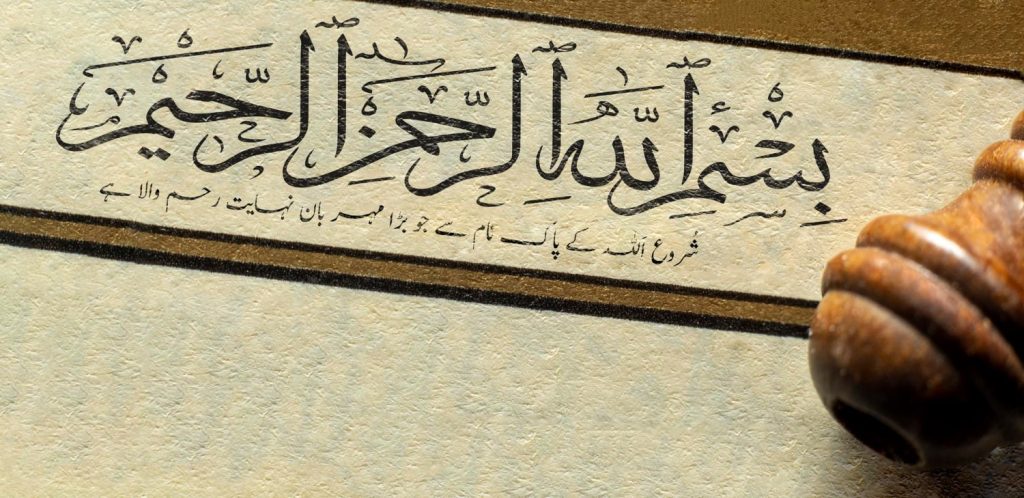 بِسْمِ ٱللَّٰهِ ٱلرَّحْمَٰنِ ٱلرَّحِيمِ
شروع اللہ کے پاک نام سے جو بڑا مہربان نہایت رحم والا ہے